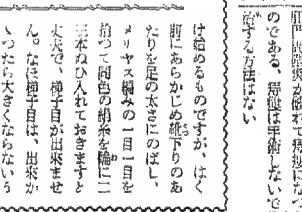 のである、痔瘻は手術しないで
治する方法はない
け始めるものですが、はく
前にあらかじめ靴下りのあ
たりを足の太さにのばし、
メリヤス編みの一目一目を
拾つて同色の絹糸を輪に二
三本ぬひ入れておきますと
丈夫で、梯子目が出來ませ
ん。なほ梯子目は、出來か
くつたら大きくならないう